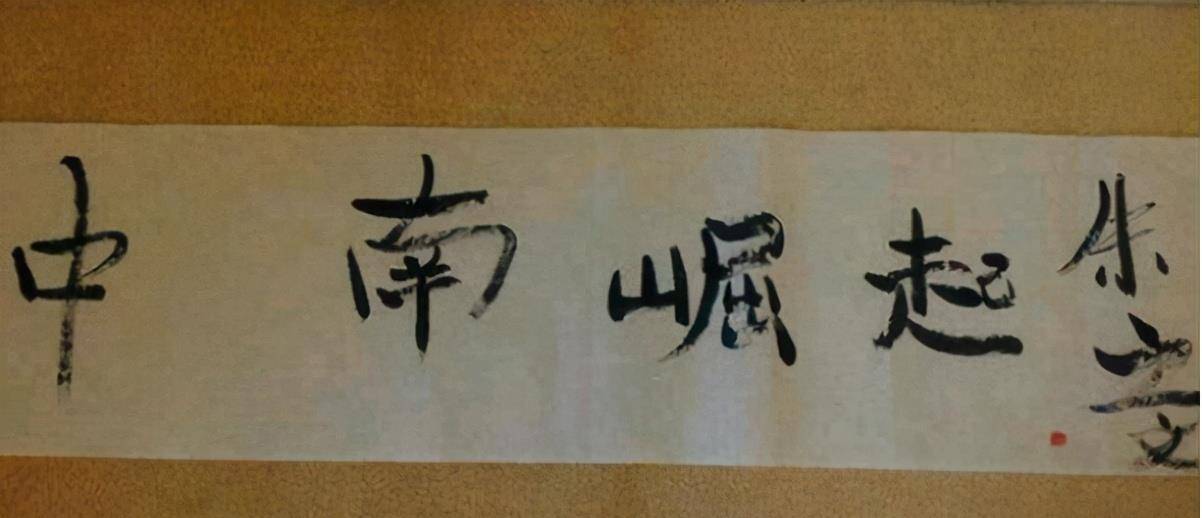 中南崛起
朱之文